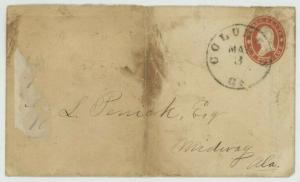 COLUM
MA
3
GE
L. Penick, Esq
Midway
Ala.